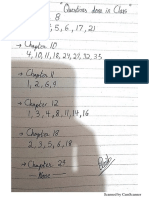 "Questions done in Class"
8
5, 6, 17, 21
→ Chapter 10
4, 10, 11, 18, 24, 27, 32, 35
→ Chapter 11
1, 2, 6, 9
→ Chapter 12
1, 3, 4, 8, 11, 14, 16
→ Chapter 18
2, 3, 5, 6, 18
→ Chapter 29
- None -
Scanned by CamScanner